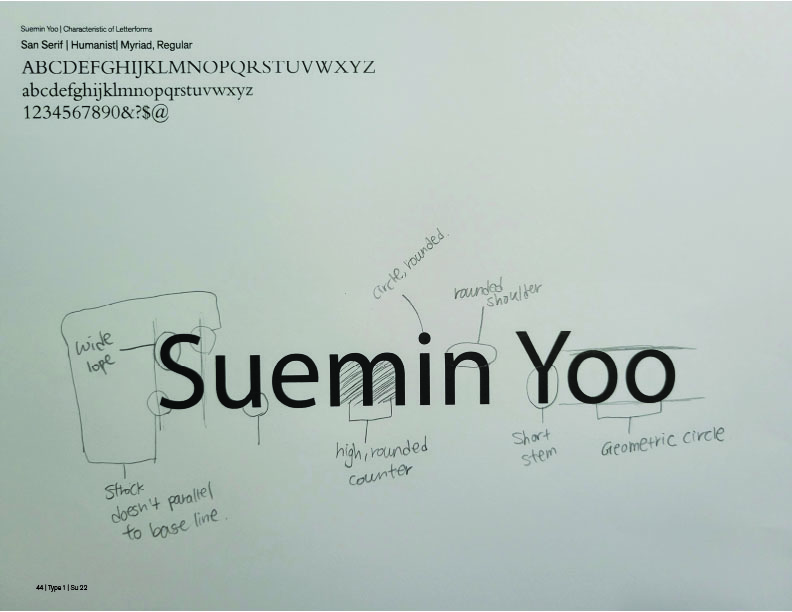 Suemin Yoo | Characteristic of Letterforms
San Serif | Humanist| Myriad, Regular
ABCDEFGHIJKLMNOPQRSTUVWXYZ
abcdefghijklmnopqrstuvwxyz
1234567890&?$@
circle, rounded.
rounded
shoulder
wide
lope
Suemin Yoo
high, rounded
counter
Short
stem
Geometric circle
Strock
doesn't parallel
to base line.
44 | Type 1 | Su 22